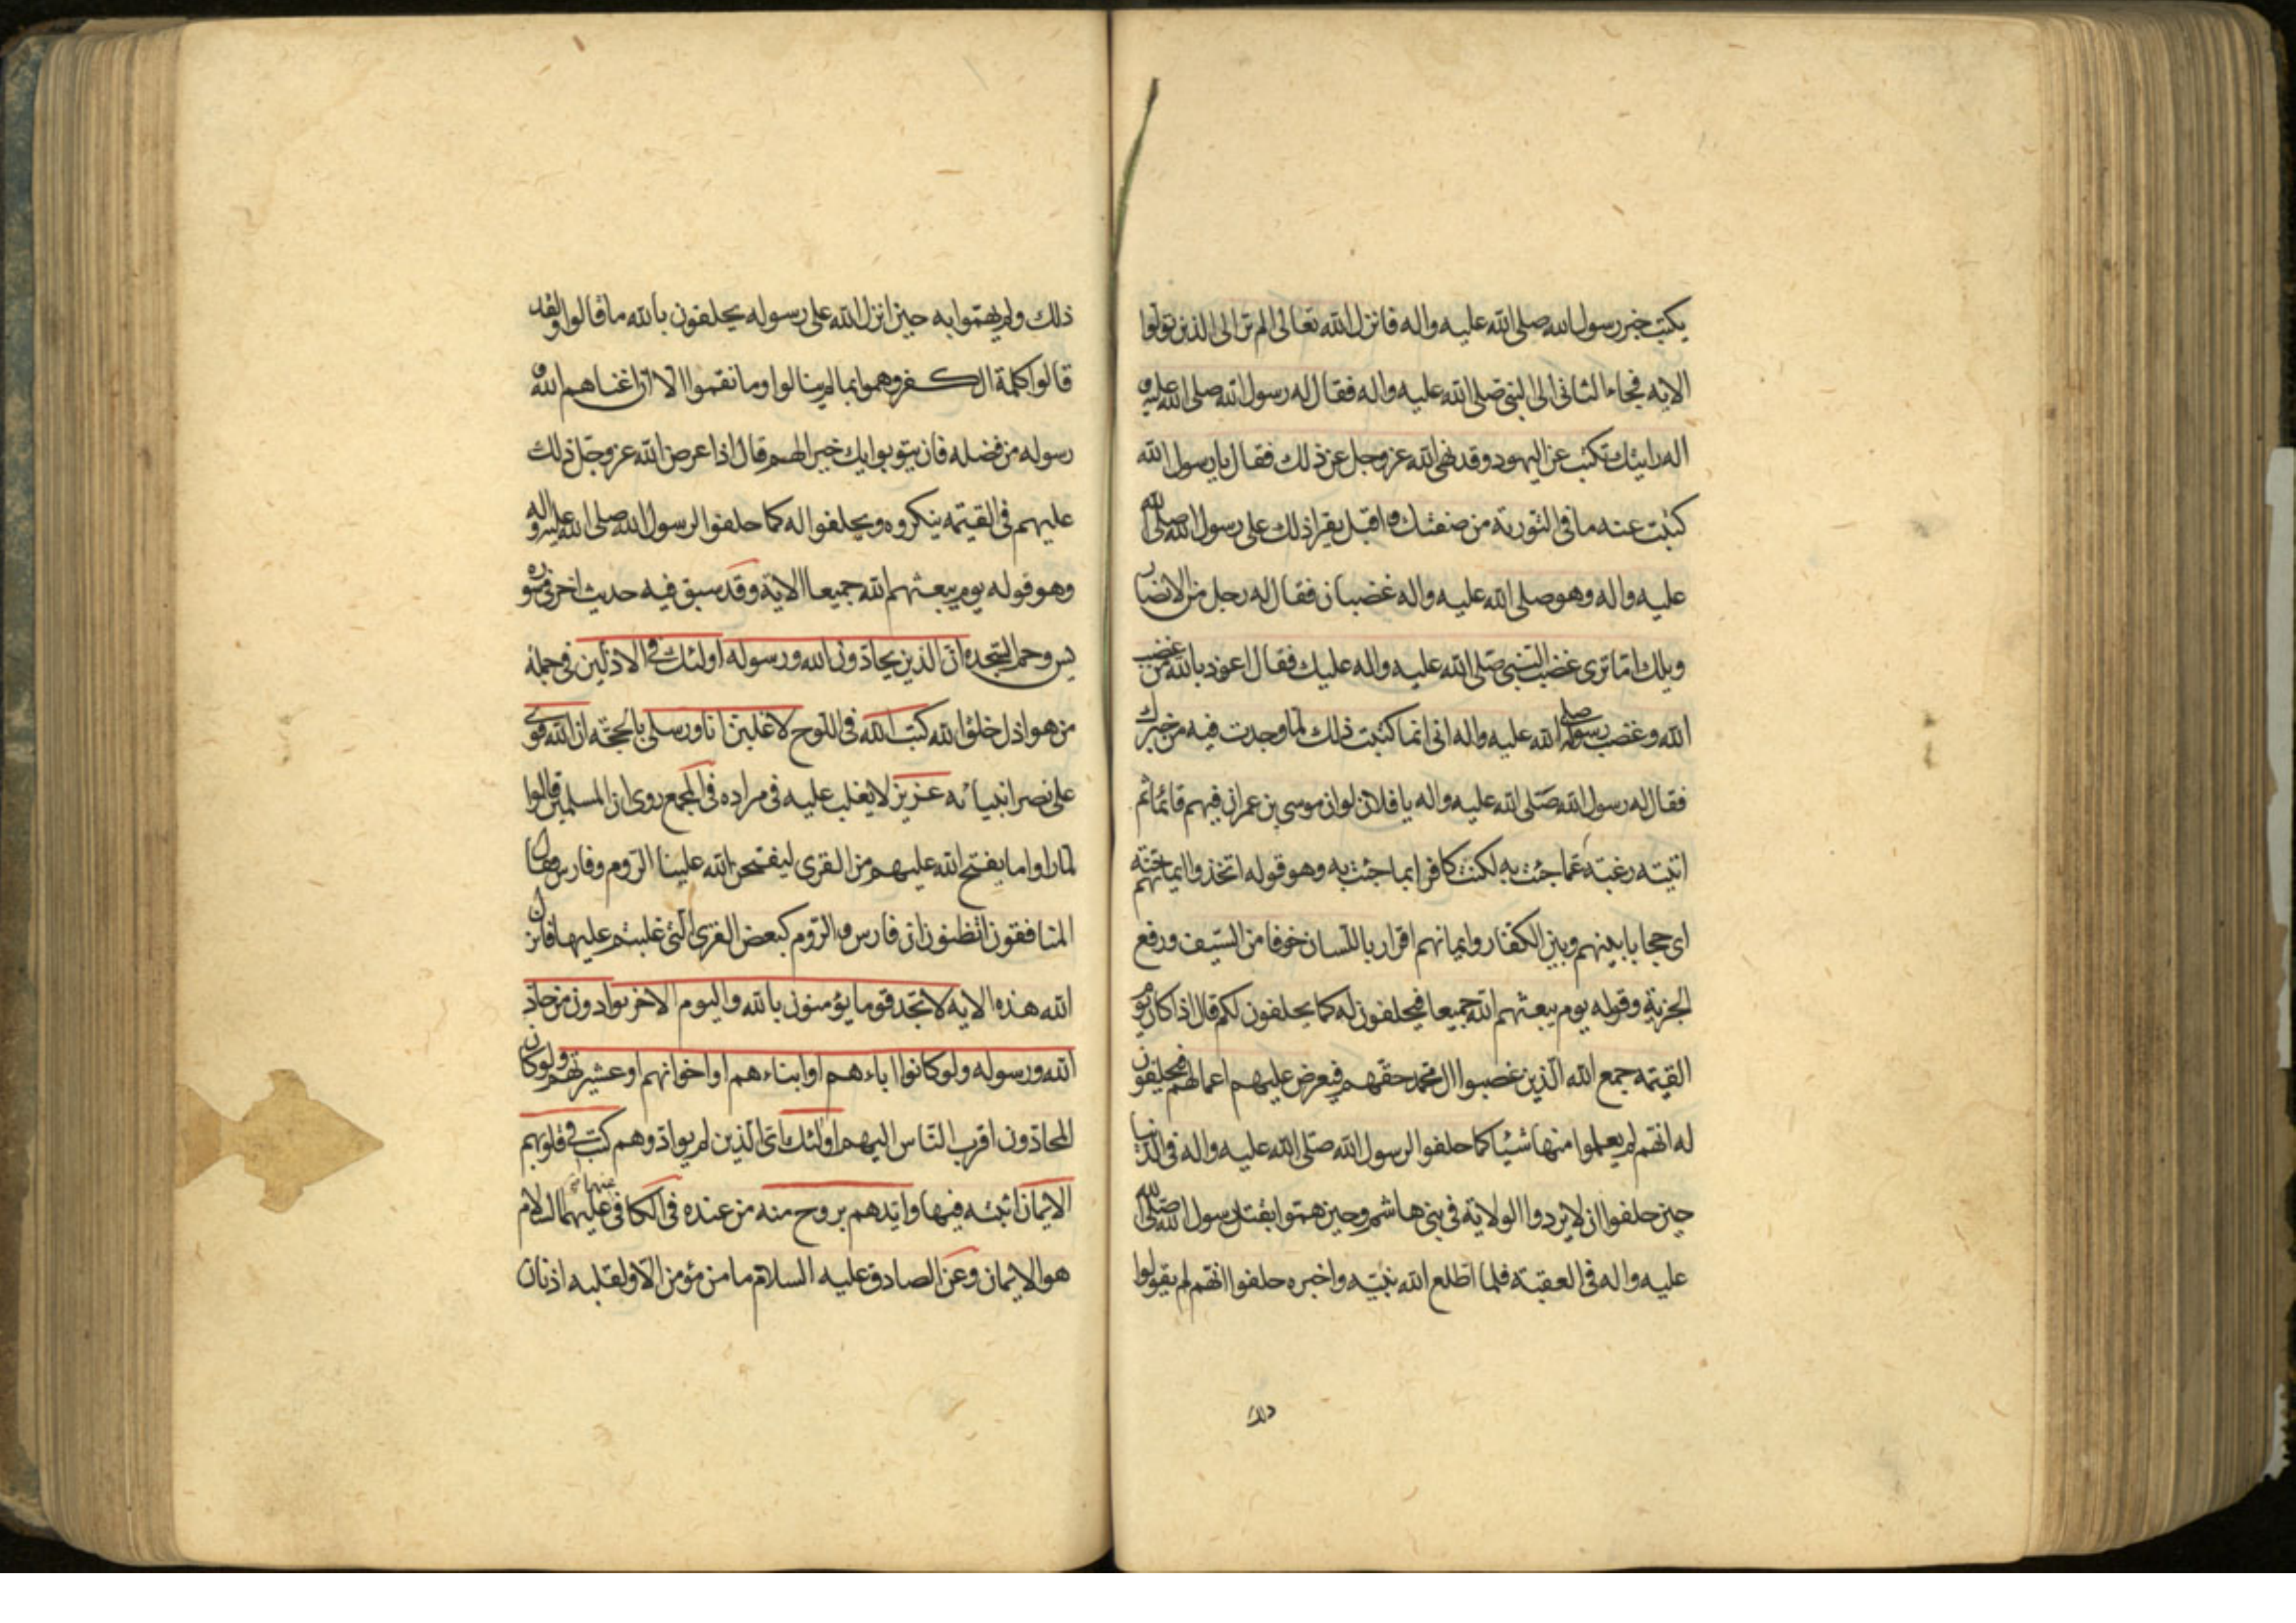 يكتب خبر رسول الله صلى الله عليه واله فانزل الله تعالى الم تر الى الذين تولوا
الايه فجاء الثانى الى النبى صلى الله عليه واله فقال له رسول الله صلى الله عليه و
اله رايتك تكتب عن اليهود وقد نهى الله عز وجل عن ذلك فقال يا رسول الله
كتبت عنه ما فى التورية من صفتك واقبل يقرا ذلك على رسول الله صلى الله
عليه واله وهو صلى الله عليه واله غضبان فقال له رجل من الانصار
ويلك اما ترى غضب النبى صلى الله عليه واله عليك فقال اعوذ بالله من غضب
الله وغضب رسوله صلى الله عليه واله انى انما كتبت ذلك لما وجدت فيه من خبرك
فقال له رسول الله صلى الله عليه واله يا فلان لو ان موسى بن عمران فيهم قائما ثم
اتيته رغبة عما جئت به لكنت كافرا بما جئت به وهو قوله اتخذوا ايمانهم جنة
اى حجابا بينهم وبين الكفار وايمانهم اقرار باللسان خوفا من السيف ورفع
الجزية وقوله يوم يبعثهم الله جميعا فيحلفون له كما يحلفون لكم قال اذا كان يوم
القيمة جمع الله الذين غصبوا ال محمد حقهم فيعرض عليهم اعمالهم فيحلفون
له انهم لم يعملوا منها شيئا كما حلفوا لرسول الله صلى الله عليه واله فى الدنيا
حين حلفوا ان لا يردوا الولاية فى بنى هاشم وحين هموا بقتل رسول الله صلى الله
عليه واله فى العقبة فلما اطلع الله نبيه واخبره حلفوا انهم لم يقولوا
ذلك
ذلك ولم يهتموا به حين انزل الله على رسوله يحلفون بالله ما قالوا ولقد
قالوا كلمة الكفر وهموا بما لم ينالوا وما نقموا الا ان اغناهم الله و
رسوله من فضله فان يتوبوا يك خيرا لهم قال اذا عرض الله عز وجل ذلك
عليهم فى القيمة ينكروه ويحلفوا له كما حلفوا لرسول الله صلى الله عليه واله
وهو قوله يوم يبعثهم الله جميعا الاية وقد سبق فيه حديث اخر فى سورة
يس وحم السجده ان الذين يحادون الله ورسوله اولئك فى الاذلين فى جملة
من هو اذل خلق الله كتب الله فى اللوح لاغلبن انا ورسلى بالحجة ان الله قوى
على نصر انبيائه عزيز لا يغلب عليه فى مراده فى المجمع روى ان المسلمين قالوا
لما راوا ما يفتح الله عليهم من القرى ليفتحن الله علينا الروم وفارس فقال
المنافقون اتظنون ان فارس والروم كبعض القرى التى غلبتم عليها فانزل
الله هذه الايه لا تجد قوما يؤمنون بالله واليوم الاخر يوادون من حاد
الله ورسوله ولو كانوا اباءهم او ابناءهم او اخوانهم او عشيرتهم ولو كان
المحادون اقرب الناس اليهم اولئك اى الذين لم يوادوهم كتب فى قلوبهم
الايمان اثبته فيها وايدهم بروح منه من عنده فى الكافى عنهما عليهما السلام
هو الايمان وعن الصادق عليه السلام ما من مؤمن الا ولقلبه اذنان